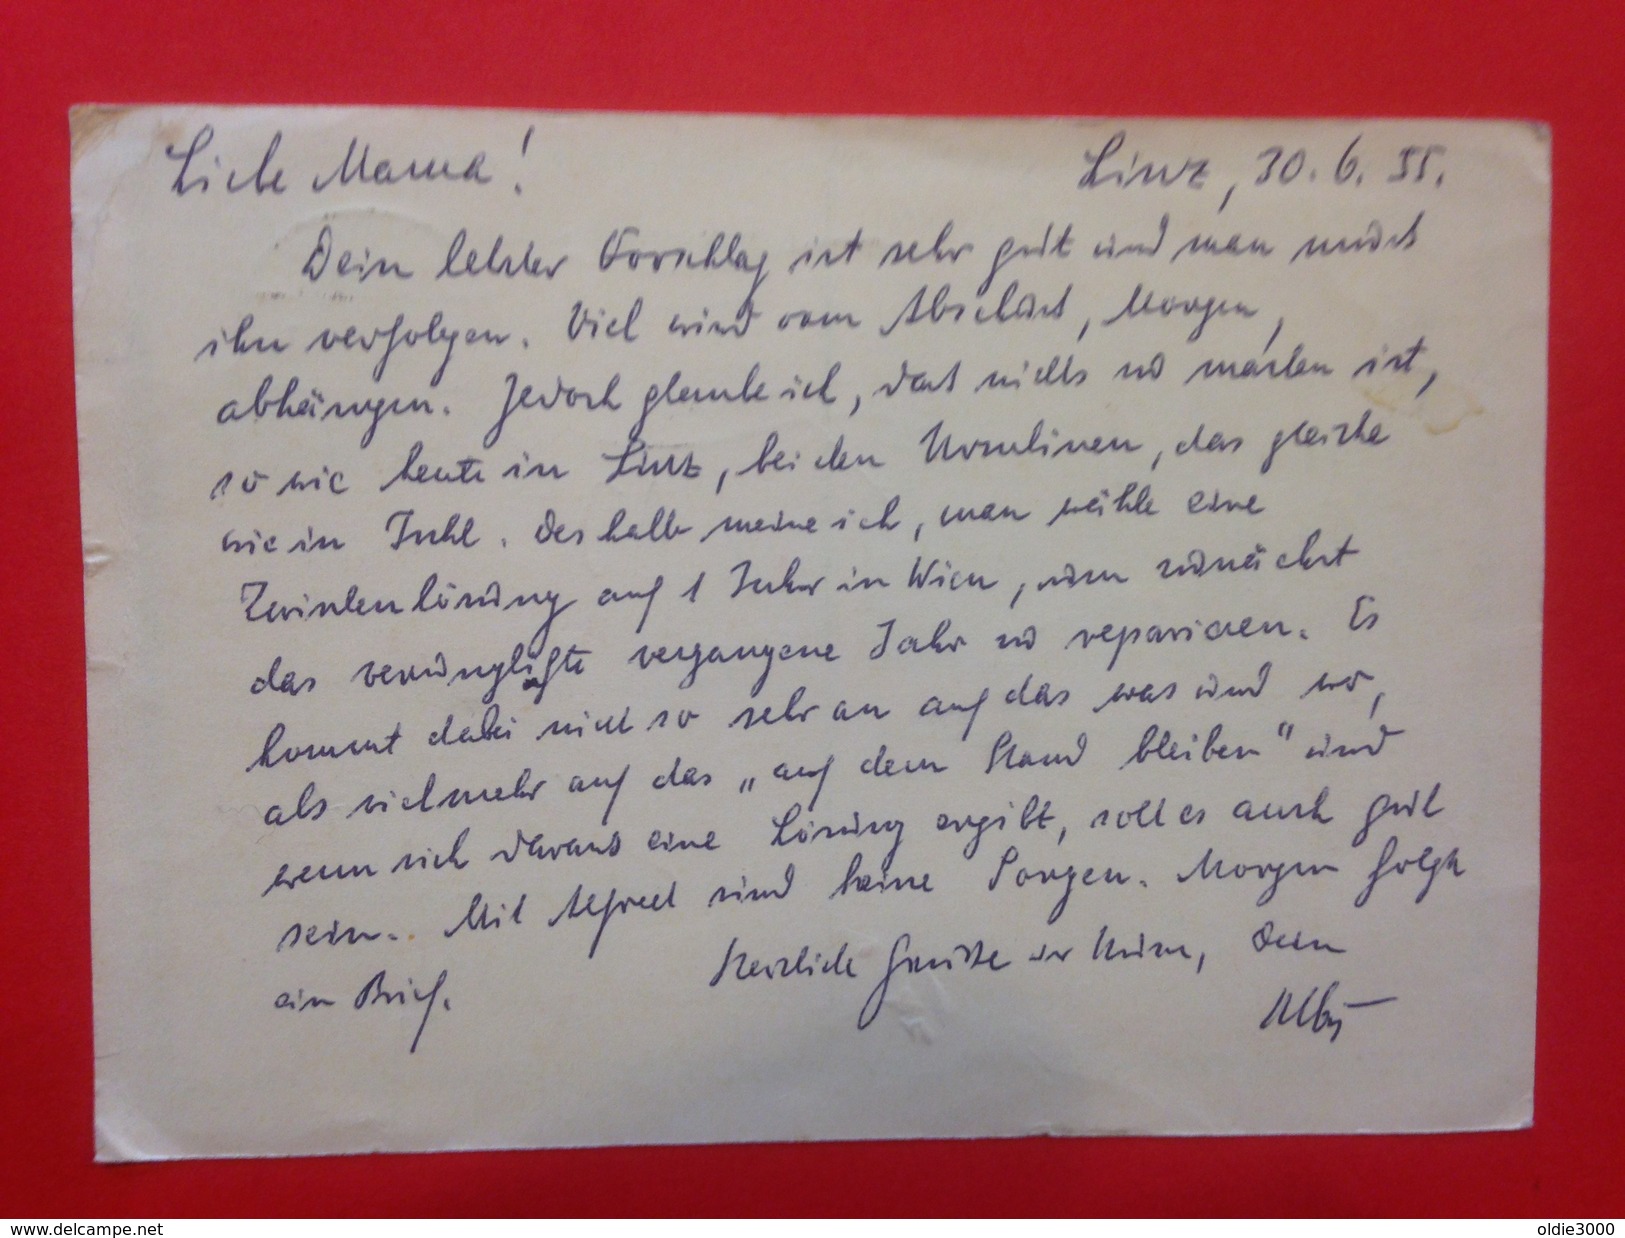 Liebe Mama! Linz, 30.6.55.
Dein letzter Vorschlag ist sehr gut und man muss
ihn verfolgen. Viel wird vom Abschluss, Morgen,
abhängen. Jedoch glaube ich, dass nichts zu machen ist,
so wie heute in Linz, bei den Ursulinen, das gleiche
wie in Ischl. Deshalb meine ich, man wähle eine
Zwischenlösung auf 1 Jahr in Wien, um zunächst
das verunglückte vergangene Jahr zu reparieren. Es
kommt dabei nicht so sehr an auf das was und wo,
als vielmehr auf das „auf dem Stand bleiben" und
wenn sich daraus eine Lösung ergibt, soll es auch gut
sein. Mit Alfred sind keine Sorgen. Morgen folgt
ein Brief. Herzliche Grüße Dein
www.delcampe.net
oldie3000